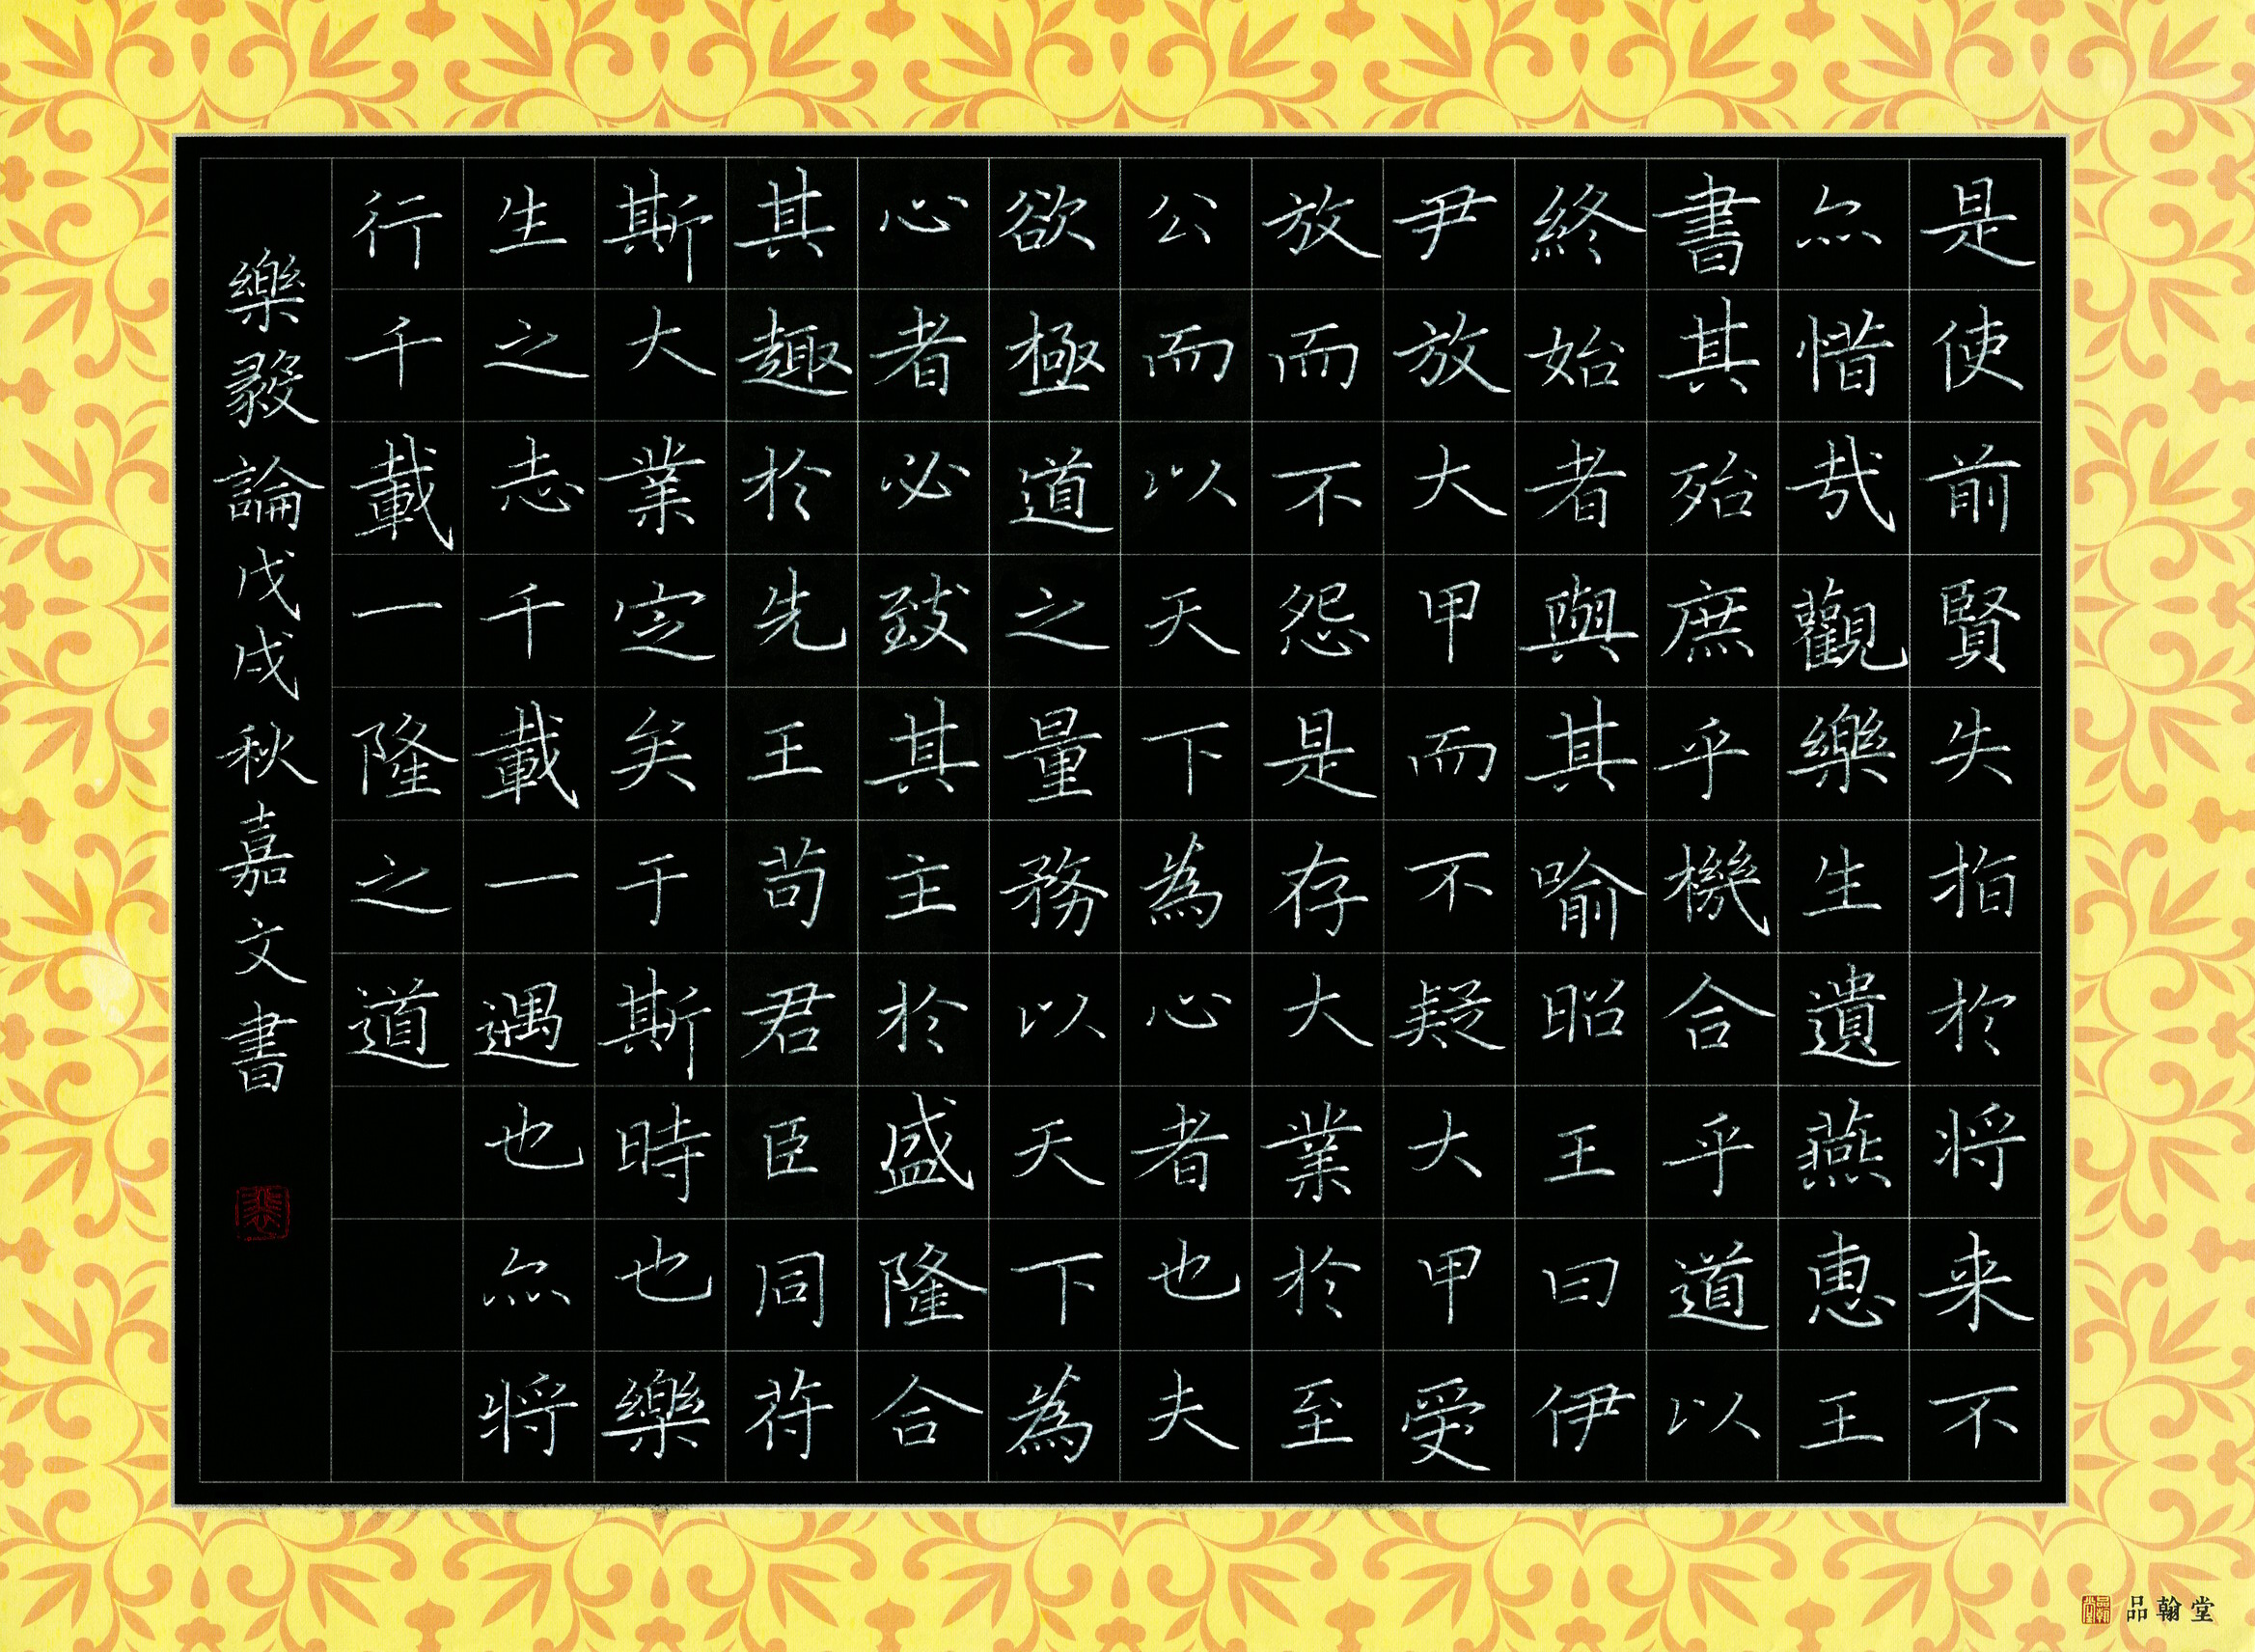 是使前賢失指於将来不
亦惜哉觀樂生遺燕惠王
書其殆庶乎機合乎道以
終始者與其喻昭王曰伊
尹放大甲而不疑大甲受
放而不怨是存大業於至
公而以天下為心者也夫
欲極道之量務以天下為
心者必致其主於盛隆合
其趣於先王苟君臣同符
斯大業定矣于斯時也樂
生之志千載一遇也亦将
行千載一隆之道
樂毅論戊戌秋嘉文書
品翰堂